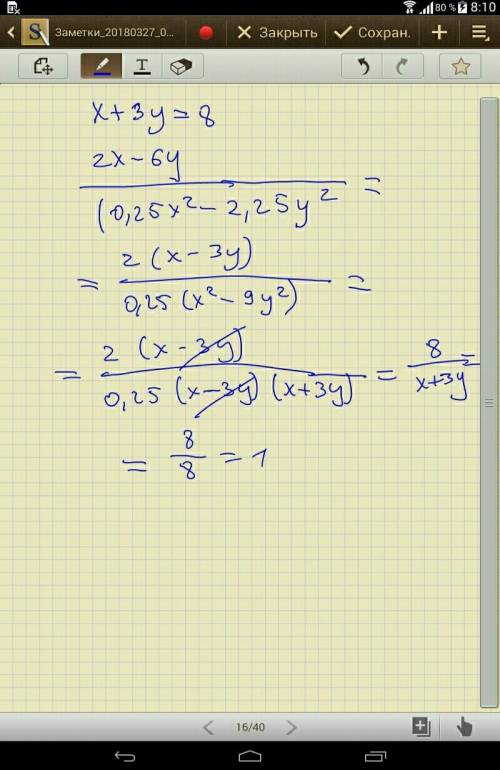 80 % 8:10
Заметки_20180327_0... Закрыть Сохран.
x+3y=8
2x-6y
(0,25x²-2,25y² =
= 2(x-3y)
0,25(x²-9y²) =
= 2 (x-3y)
0,25 (x-3y) (x+3y) = 8
x+3y =
= 8
8 = 1
16/40